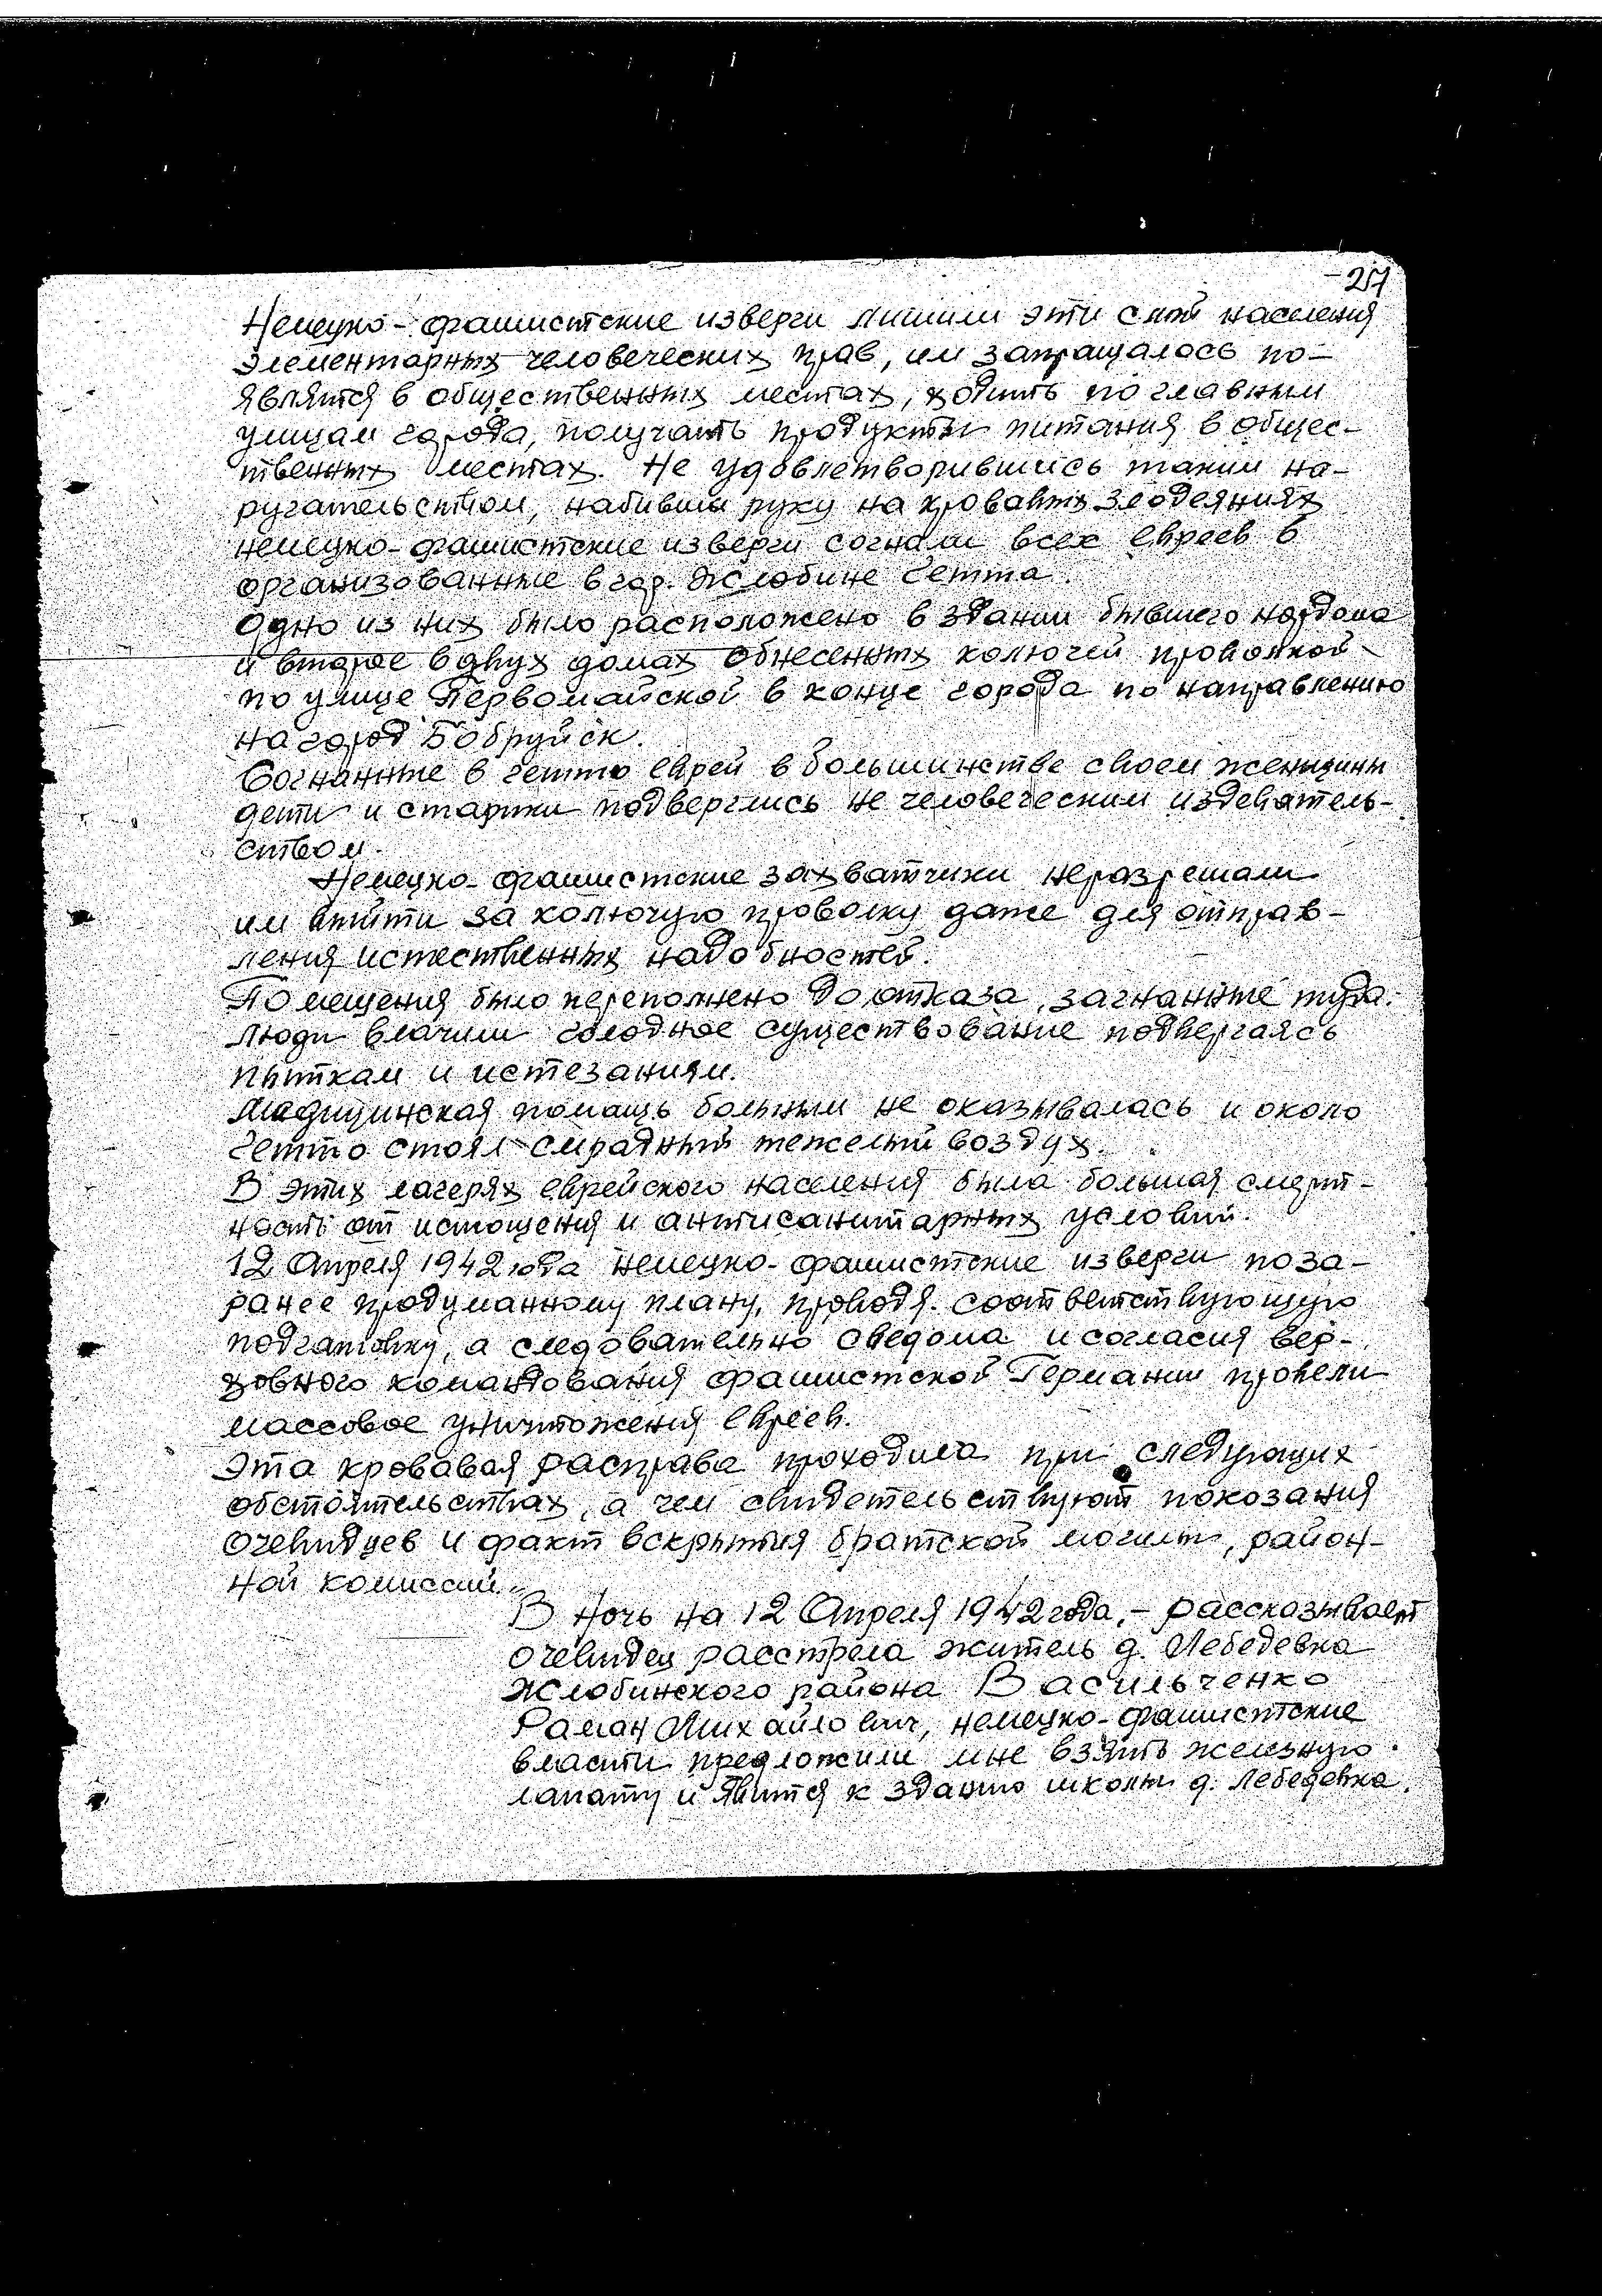 217
Немецко-фашистские изверги лишили эти слои населения
элементарных человеческих прав, им запращалось по-
являтся в общественных местах, ходить по главным
улицам города, получать продукты питания в общес-
твенных местах. Не удовлетворившись таким на-
ругательством, набивши руку на кровавых злодеяниях
немецко-фашистские изверги согнали всех евреев в
организованные в гор. Жлобине гетта.
Одно из них было расположено в здании бывшего нардома
и второе в двух домах обнесенных колючей проволкой
по улице Первомайской в конце города по направлению
на город Бобруйск.
Согнанные в гетто еврей в большинстве своем женщины
дети и старики подверглись не человеческим издеватель-
ством.
Немецко-фашистские захватчики неразрешали
им выйти за колючую проволку даже для отправ-
ления истественных надобностей.
Помещения было переполнено до отказа, загнанные туда
люди влачили голодное существование подвергаясь
пыткам и истезаниям.
Медицинская помощь больным не оказывалась и около
гетто стоял смрадный тежелый воздух.
В этих лагерях еврейского населения была большая смерт-
ность от истощения и антисанитарных условий.
12 Апреля 1942 года немецко-фашистские изверги по за-
ранее продуманному плану, проводя соответствующую
подгатовку, а следовательно сведома и согласия вер-
ховного командования фашистской Германии провели
массовое уничтожения евреев.
Эта кровавая расправа проходила при следующих
обстоятельствах, а чем свидетельствуют показания
очевидцев и факт вскрытия братской могилы, район-
ной комиссий.
В ночь на 12 Апреля 1942 года, - рассказывает
очевидец расстрела житель д. Лебедевка
Жлобинского района Васильченко
Раман Михайлович, немецко-фашистские
власти предложили мне взять железную
лапату и явится к зданию школы д. Лебедевка.